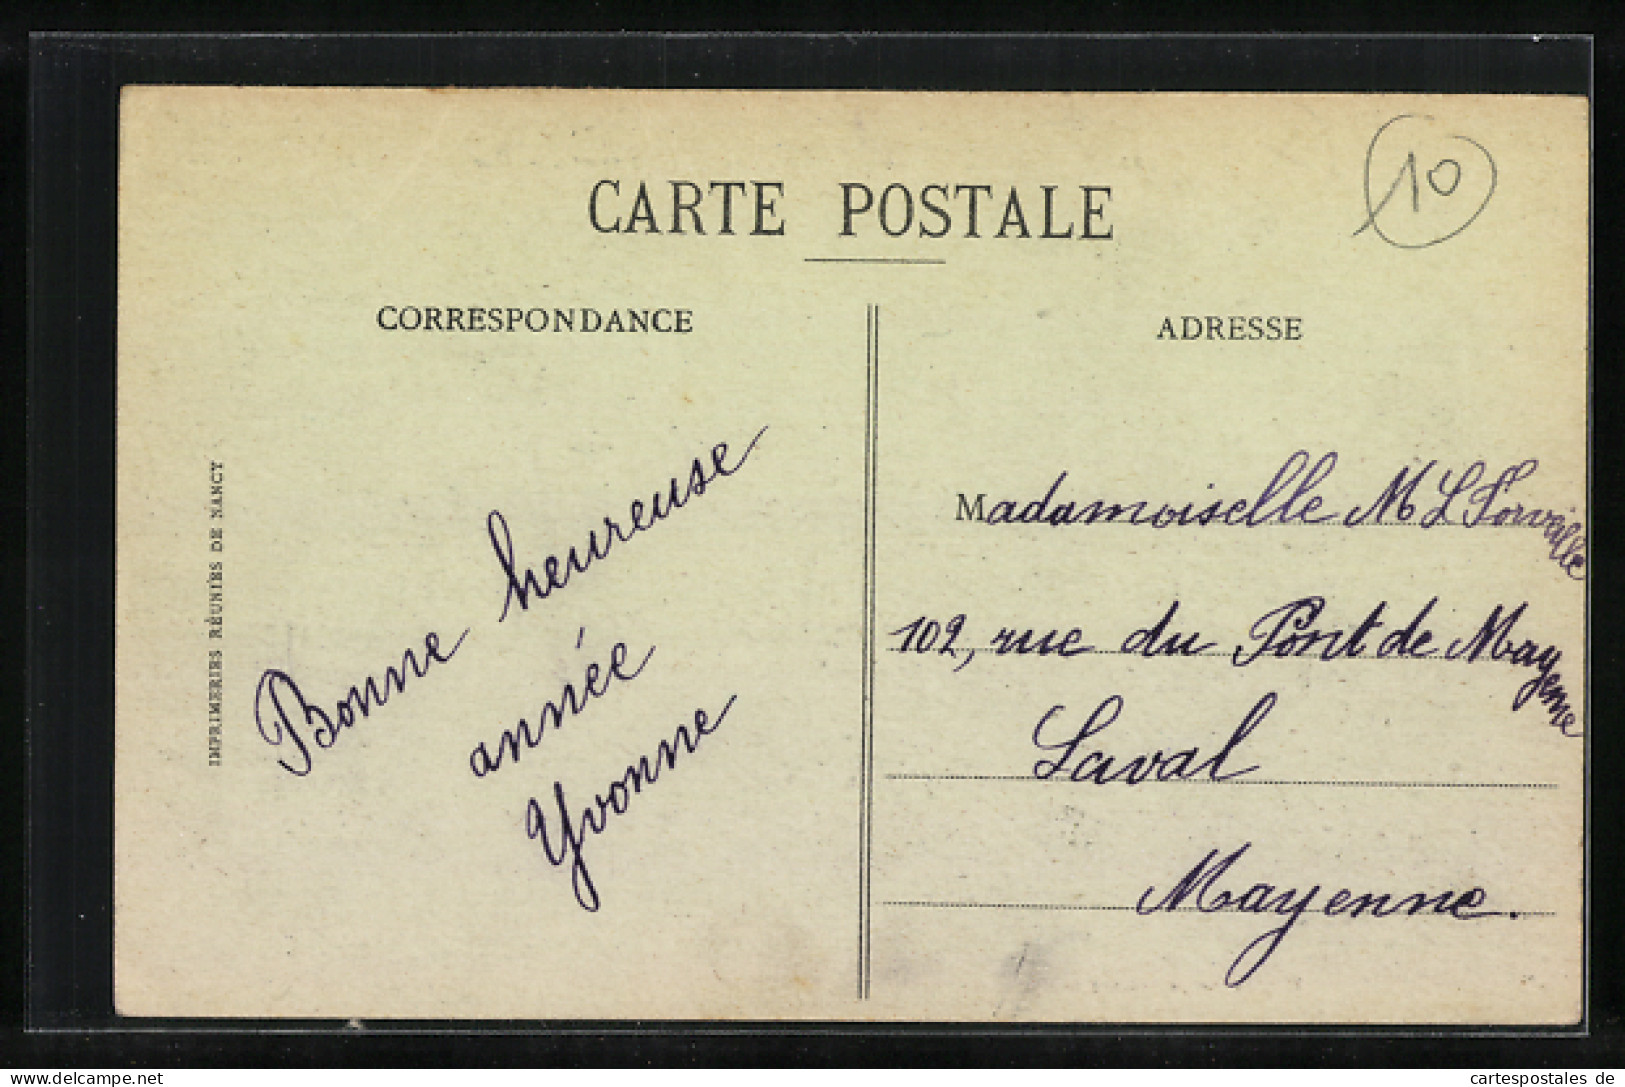 CARTE POSTALE
10
CORRESPONDANCE
Bonne heureuse
année
Yvonne
IMPRIMERIES RÉUNIES DE NANCY
ADRESSE
Mademoiselle M L
102, rue du Pont de Mayenne
Laval
Mayenne.
delcampe.net
cartespostales de